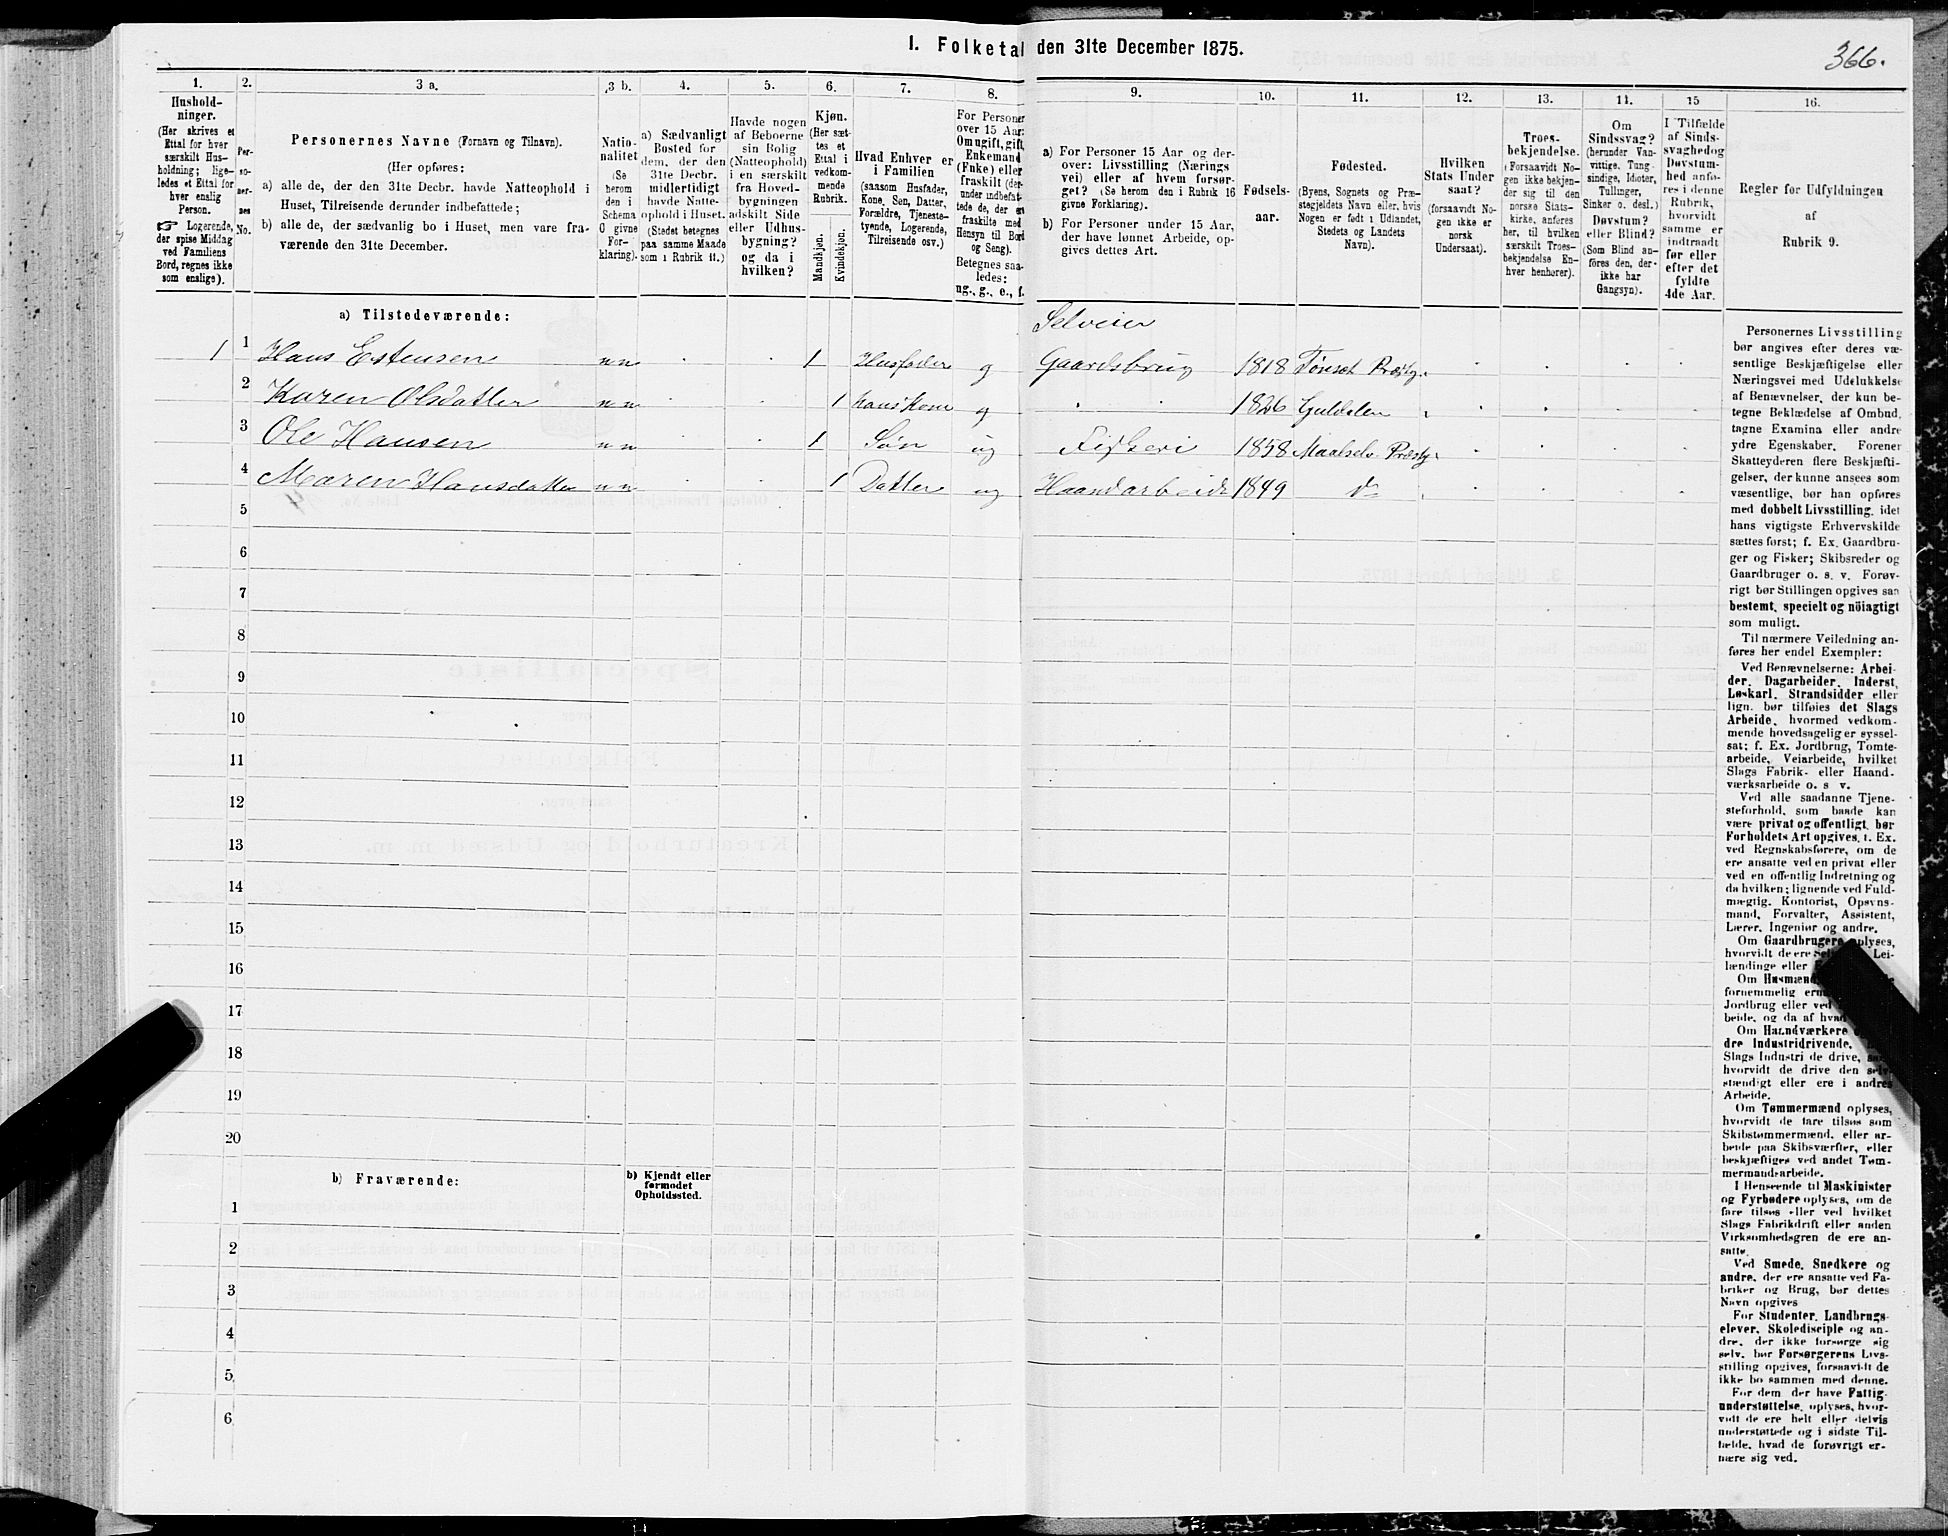 I. Folketal den 31te December 1875.
366.
1. 2. 3 a. 3 b. 4. 5. 6. 7. 8. 9. 10. 11. 12. 13. 14. 15 16.
Hushold-
ninger.
(Her skrives et
Ettal for hver
særskilt Hus-
holdning; lige-
ledes et Ettal for
hver enslig
Person.
☞ Logerende,
der spise Middag
ved Familiens
Bord, regnes ikke
som enslige).
Per-
so-
ner-
nes
No.
Personernes Navne (Fornavn og Tilnavn).
(Her opføres:
a) alle de, der den 31te Decbr. havde Natteophold i
Huset, Tilreisende derunder indbefattede;
b) alle de, der sædvanlig bo i Huset, men vare fra-
værende den 31te December.
Natio-
nalitet
(Se
herom
den i
Schema
O givne
For-
klaring).
a) Sædvanligt
Bosted for
dem, der den
31te Decbr.
midlertidigt
havde Natte-
ophold i Huset.
(Stedet betegnes
paa samme Maade
som i Rubrik 11.)
Havde nogen
af Beboerne
sin Bolig
(Natteophold)
i en særskilt
fra Hoved-
bygningen
adskilt Side
eller Udhus-
bygning?
og da i
hvilken?
Kjøn.
(Her sæt-
tes et
Ettal i
vedkom-
mende
Rubrik.
Mandkjøn.
Kvindekjøn.
Hvad Enhver er
i Familien
(saasom Husfader,
Kone, Søn, Datter,
Forældre, Tjeneste-
tyende, Logerende,
Tilreisende osv.)
For Personer
over 15 Aar:
Om ugift, gift,
Enkemand
(Enke) eller
fraskilt (der-
under indbefat-
tede de, der ere
fraskilte med
Hensyn til Bord
og Seng).
Betegnes saa-
ledes:
ug., g., e., f.
a) For Personer 15 Aar og der-
over: Livsstilling (Nærings
vei) eller af hvem forsør-
get? (Se herom den i Rubrik 16
givne Forklaring).
b) For Personer under 15 Aar,
der have lønnet Arbeide, op-
gives dettes Art.
Fødsels-
aar.
Fødested.
(Byens, Sognets og Præ-
stegjeldets Navn eller, hvis
Nogen er født i Udlandet,
Stedets og Landets
Navn).
Hvilken
Stats Under
saat?
(forsaavidt No-
gen ikke er
norsk
Undersaat).
Troes-
bekjendelse.
(Forsaavidt No-
gen ikke bekjen-
der sig til den
norske Stats-
kirke, anføres
her, til hvilken
særskilt Troes-
bekjendelse En-
hver henhører).
Om
Sindssvag?
(herunder Van-
vittige, Tung-
sindige, Idioter,
Tullinger,
Sinker o. desl.)
Døvstum?
eller Blind?
(Som Blind an-
føres den, der-
ikke har
Gangsyn).
I Tilfælde
af Sinds-
svaghed og
Døvstum-
hed anfø-
res i denne
Rubrik,
hvorvidt
samme er
indtraadt
før eller
efter det
fyldte
4de Aar.
Regler for Udfyldningen
af
Rubrik 9.
a) Tilstedeværende:
Selveier
1 1 Hans Estensen n n 1 Husfader g Gaardsbrug 1818 Tønset Præstg.
2 Karen Olsdatter n n 1 hans kone g 1826 Guldalen
3 Ole Hansen n n 1 Søn ug Fiskeri 1858 Maalselv Præstg.
4 Maren Hansdatter n n 1 Datter ug Haandarbeide 1849 do
5
6
7
8
9
10
11
12
13
14
15
16
17
18
19
20
b) Fraværende:
b) Kjendt eller
formodet
Opholdssted.
1
2
3
4
5
6
Personernes Livsstilling
bør angives efter deres væ-
sentlige Beskjæftigelse eller
Næringsvei med Udelukkelse
af Benævnelser, der kun be-
tegne Beklædelse af Ombud,
tagne Examina eller andre
ydre Egenskaber. Forener
Skatteyderen flere Beskjæfti-
gelser, der kunne ansees som
væsentlige, bør han opføres
med dobbelt Livsstilling, idet
hans vigtigste Erhvervskilde
sættes først; f. Ex. Gaardbru-
ger og Fisker; Skibsreder og
Gaardbruger o. s. v. Forøv-
rigt bør Stillingen opgives saa
bestemt, specielt og nöiagtigt
som muligt.
Til nærmere Veiledning an-
føres her endel Exempler:
Ved Benævnelserne: Arbei-
der, Dagarbeider, Inderst,
Løskarl, Strandsidder eller
lign. bør tilføies det Slags
Arbeide, hvormed vedkom-
mende hovedsagelig er syssel-
sat; f. Ex. Jordbrug, Tomte-
arbeide, Veiarbeide, hvilket
Slags Fabrik- eller Haand-
værksarbeide o. s v.
Ved alle saadanne Tjene-
steforhold, som baade kan
være privat og offentligt, bør
Forholdets Art opgives, t. Ex.
ved Regnskabsførere, om de
ere ansatte ved en privat eller
ved en offentlig Indretning og
da hvilken; lignende ved Fuld-
mægtig, Kontorist, Opsyns-
mand, Forvalter, Assistent,
Lærer, Ingeniør og andre.
Om Gaardbrugere oplyses,
hvorvidt de ere Lei-
lændinge eller
Om Husmænd
fornemmelig
Jordbrug eller ved
beide, og da af hvad
Om Haandværkere
dre Industridrivende,
Slags Industri de drive,
hvorvidt de drive den selv-
stændigt eller ere i andres
Arbeide.
Om Tømmermænd oplyses,
hvorvidt de fare tilsøs som
Skibstømmermænd, eller ar-
beide paa Skibsværfter, eller
beskjæftiges ved andet Tøm-
mermandsarbeide.
I Henseende til Maskinister
og Fyrbødere oplyses, om de
fare tilsøs eller ved hvilket
Slags Fabrikdrift eller anden
Virksomhedsgren de ere an-
satte.
Ved Smede, Snedkere og
andre, der ere ansatte ved Fa-
briker og Brug, bør dettes
Navn opgives
For Studenter, Landbrugs-
elever, Skoledisciple og an-
dre, der ikke forsørge sig
selv, bør Forsørgerens Livs-
stilling opgives, forsaavidt de
ikke bo sammen med denne.
For dem, der have Fattig-
understøttelse, oplyses, hvor-
vidt de ere helt eller delvis
understøttede og i sidste Til-
fælde, hvad de forøvrigt er-
nære sig ved.